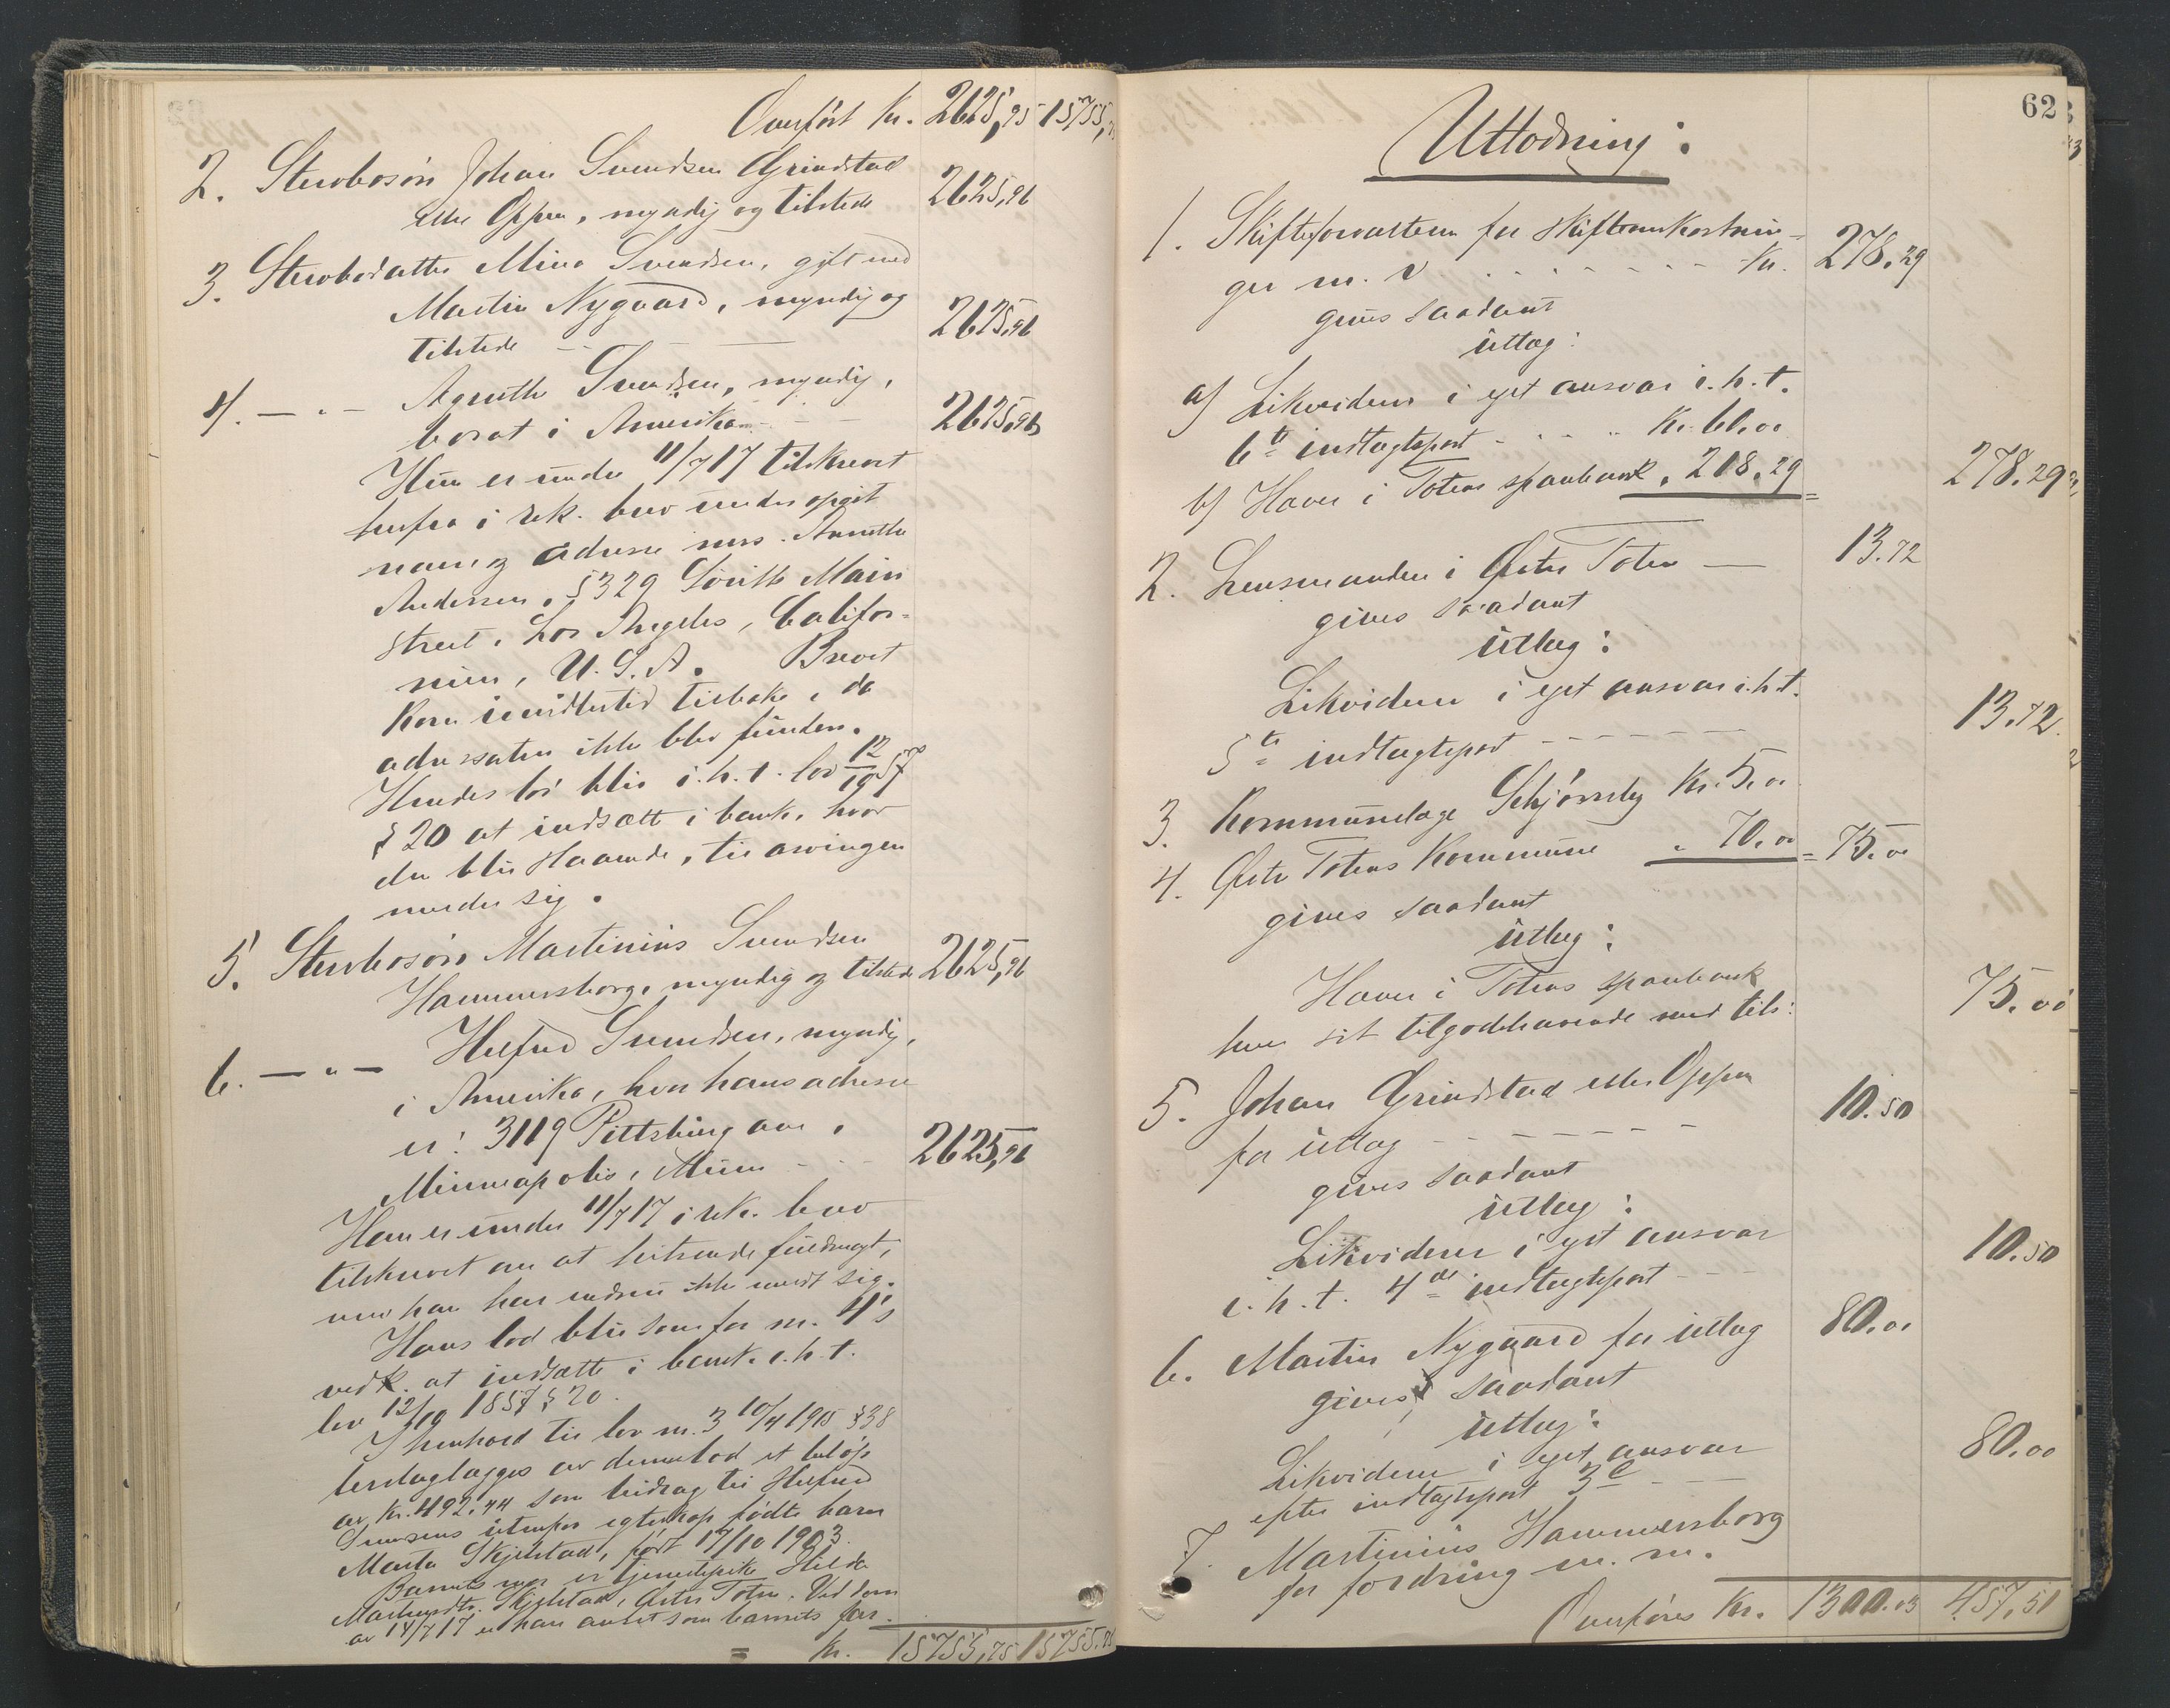 Overført Kr. 2625,95 15755,
2. Stervbosøn Johan Svendsen Grindstad
eller Oppen, myndig og tilstede 2625,96
3. Stervbodatter Mina Svendsen, gift med
Martin Nygaard, myndig og
tilstede — — 2625,96
4. — " — Agnethe Svendsen, myndig,
bosat i Amerika 2625,96
Hun er under 11/7 17 tilskrevet
herfra i rek. brev under opgit
navn og adresse mrs. Annethe
Andersen, 5329 South Main
Street, Los Angeles, Califor-
nien, U.S.A. Brevet
kom imidlertid tilbake, da
adressaten ikke blev funden.
Hendes lod blir i.h.t. lov 12/10 57
§ 20 at indsætte i bank, hvor
den blir staaende, til arvingen
melder sig.
5. Stervbosøn Martinius Svendsen
Hammersborg, myndig og tilstede 2625,96
6. — " — Helfred Svendsen, myndig,
i Amerika, hvor hans adresse
er: 3119 Pittsburg ave,
Minneapolis, Minn 2625,96
Han er under 11/7 17 i rek. brev
tilskrevet om at hitsende fuldmagt,
men han har endnu ikke meldt sig.
Hans lod blir som for nr. 4's
vedk. at indsætte i bank i.h.t.
lov 12/10 1857 § 20.
I henhold til lov nr. 3 10/4 1915 § 38
beslaglægges av denne lod et beløp
av kr. 492.44 som bidrag til Helfred
Svendsens utenfor egteskap fødte barn
Marta Skjelstad, født 17/10 1903.
Barnets mor er tjenestepike Hilda
Skjelstad, Østre Toten. Ved dom
av 14/7 17 er han anset som barnets far.
= Kr. 15755,75 15755,
62
Utlodning:
1. Skifteforvalteren for skifteomkostnin-
ger m. v. Kr. 278.29
gives saadant
utlæg:
a) Likviderer i eget ansvar i.h.t.
6te indtægtspost Kr. 60.00
b) Haver i Totens sparebank " 218.29 = 278.29
2. Lensmanden i Østre Toten — 13.72
gives saadant
utlæg:
Likviderer i eget ansvar i.h.t.
5te indtægtspost 13.72
3. Kommunelæge Schjørnsby Kr. 5.00
4. Østre Totens Kommune " 70.00 = 75.00
gives saadant
utlæg:
Haver i Totens sparebank
hver sit tilgodehavende med tils: 75.00
5. Johan Grindstad eller Oppen
for utlæg 10.50
gives saadant
utlæg:
Likviderer i eget ansvar
i.h.t. 4de indtægtspost 10.50
6. Martin Nygaard for utlæg 80.00
gives saadant
utlæg:
Likviderer i eget ansvar
efter indtægtspost 3e 80.00
7. Martinius Hammersborg
for fordring m.m.
Overføres Kr. 1300.03 457.51